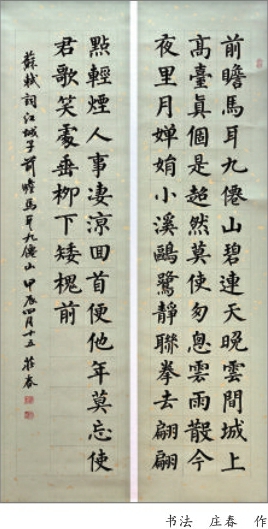 前瞻馬耳九僊山碧連天晚雲間城上
高臺真個是超然莫使匆悤雲雨散今
夜里月嬋娟小溪鷗鷺靜聯拳去翩翩
點輕煙人事凄涼回首便他年莫忘使
君歌笑處垂柳下矮槐前
蘇軾詞江城子前瞻馬耳九僊山甲辰四月十五莊春
书法 庄春 作